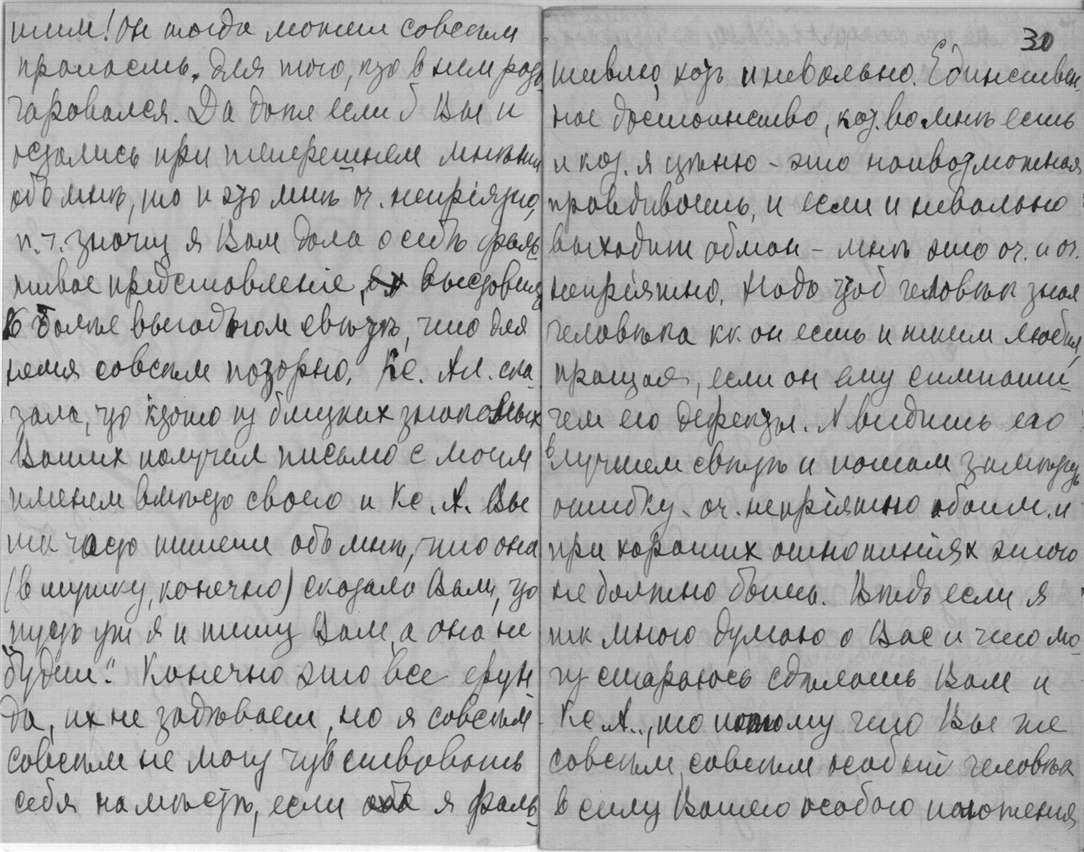 шим! Он тогда может совсем
пропасть, для того, кто в нем разо-
чаровался. Да даже если б Вы и
остались при теперешнем мнѣнии
обо мнѣ, то и это мнѣ оч. непрiятно,
п. ч. значит я Вам дала о себѣ фаль-
шивое представленiе, выставив
в болѣе выгодном свѣтѣ, что для
меня совсѣм позорно. Кс. Ал. ска-
зала, что кто-то из близких знакомых
Ваших получил письмо с моим
именем вмѣсто своего и Кс. А. Вы
так часто пишете обо мнѣ, что она
(в шутку, конечно) сказала Вам, что
"пусть уж я и пишу Вам, а она не
будет". Конечно это все ерун-
да, их не задѣвает, но я совсѣм
совсѣм не могу чувствовать
себя на мѣстѣ, если я фаль-
30
шивлю, хоть и невольно. Единствен-
ное достоинство, кот. во мнѣ есть
и кот. я цѣню - это наивозможная
правдивость, и если и невольно
выходит обман - мнѣ это оч. и оч.
непрiятно. Надо чтоб человѣк знал
человѣка кк. он есть и таким любил,
прощая, если он ему симпати-
чен его дефекты. А видѣть его
в лучшем свѣтѣ и потом замѣтить
ошибку - оч. непрiятно обоим и
при хороших отношенiях этого
не должно быть. Вѣдь если я
так много думаю о Вас и что мо-
гу стараюсь сдѣлать Вам и
Кс. А., то потому что Вы же
совсѣм, совсѣм особый человѣк
в силу Вашего особого положения